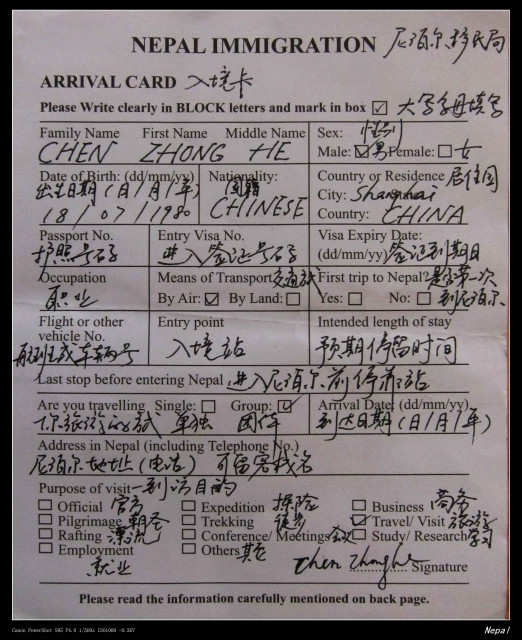 NEPAL IMMIGRATION 尼泊尔移民局
ARRIVAL CARD 入境卡
Please Write clearly in BLOCK letters and mark in box ☑ 大写字母填写
Family Name First Name Middle Name
CHEN ZHONG HE
Sex: 性别
Male: ☑ 男 Female: ☐ 女
Date of Birth: (dd/mm/yy)
出生日期 (日/月/年)
18/07/1980
Nationality:
国籍
CHINESE
Country or Residence 居住国
City: Shanghai
Country: CHINA
Passport No.
护照号码
Entry Visa No.
进入签证号码
Visa Expiry Date:
(dd/mm/yy) 签证到期日
Occupation
职业
Means of Transport 交通
By Air: ☑ By Land: ☐
First trip to Nepal? 是否第一次
Yes: ☐ No: ☐ 到尼泊尔
Flight or other
vehicle No.
航班或车辆号
Entry point
入境站
Intended length of stay
预期停留时间
Last stop before entering Nepal 进入尼泊尔前停靠站
Are you travelling Single: ☐ Group: ☑
你旅游的 单独 团体
Arrival Date: (dd/mm/yy)
到达日期 (日/月/年)
Address in Nepal (including Telephone No.)
尼泊尔地址 (电话) 可留客栈名
Purpose of visit 到访目的
☐ Official 官方 ☐ Expedition 探险 ☐ Business 商务
☐ Pilgrimage 朝圣 ☐ Trekking 徒步 ☑ Travel/ Visit 旅游
☐ Rafting 漂流 ☐ Conference/ Meetings 会议 ☐ Study/ Research 学习
☐ Employment ☐ Others 其它
就业
Chen Zhonghe
Signature
Please read the information carefully mentioned on back page.
Canon PowerShot S95 F4.0 1/500s ISO1000 -0.3EV
Nepal